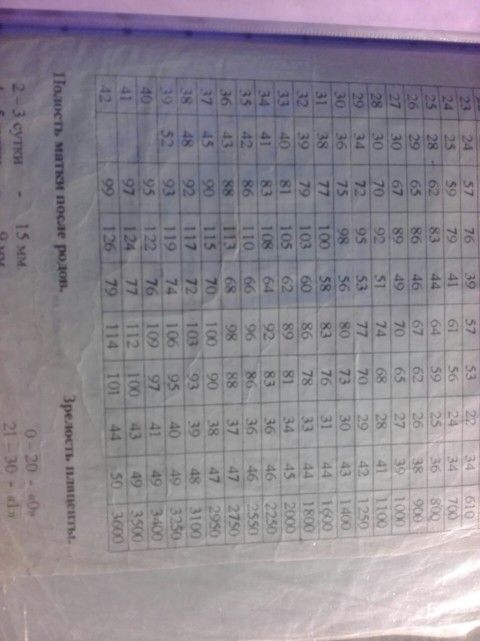 23 24 57 76 39 57 53 22 34 610
24 25 59 79 41 61 56 24 34 700
25 28 62 83 44 64 59 25 36 800
26 29 65 86 46 67 62 26 38 900
27 30 67 89 49 70 65 27 39 1000
28 30 70 92 51 74 68 28 41 1100
29 34 72 95 53 77 70 29 42 1250
30 36 75 98 56 80 73 30 43 1400
31 38 77 100 58 83 76 31 44 1600
32 39 79 103 60 86 78 33 44 1800
33 40 81 105 62 89 81 34 45 2000
34 41 83 108 64 92 83 36 46 2250
35 42 86 110 66 96 86 36 46 2550
36 43 88 113 68 98 88 37 47 2750
37 45 90 115 70 100 90 38 47 2950
38 48 92 117 72 103 93 39 48 3100
39 52 93 119 74 106 95 40 49 3250
40 95 122 76 109 97 41 49 3400
41 97 124 77 112 100 43 49 3500
42 99 126 79 114 101 44 50 3600
Полость матки после родов. Зрелость плаценты.
2 – 3 сутки - 15 мм 0 – 20 - «0»
21 – 30 - «1»